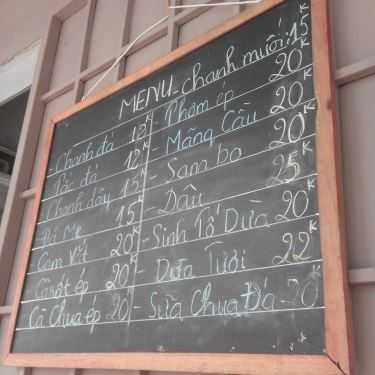 MENU - chanh muối: 15K
- Chanh đá 12K
- Tắc đá 12K
- Chanh dây 15K
- Đá Me 15K
- Cam Vắt 20K
- Cà rốt ép 20K
- Cà Chua ép 20
- Thơm ép 20K
- Mãng Cầu 20K
- Sam bo 20K
- Dâu 25K
- Sinh Tố Dừa 20K
- Dừa Tươi 22K
- Sữa Chua Đá 20